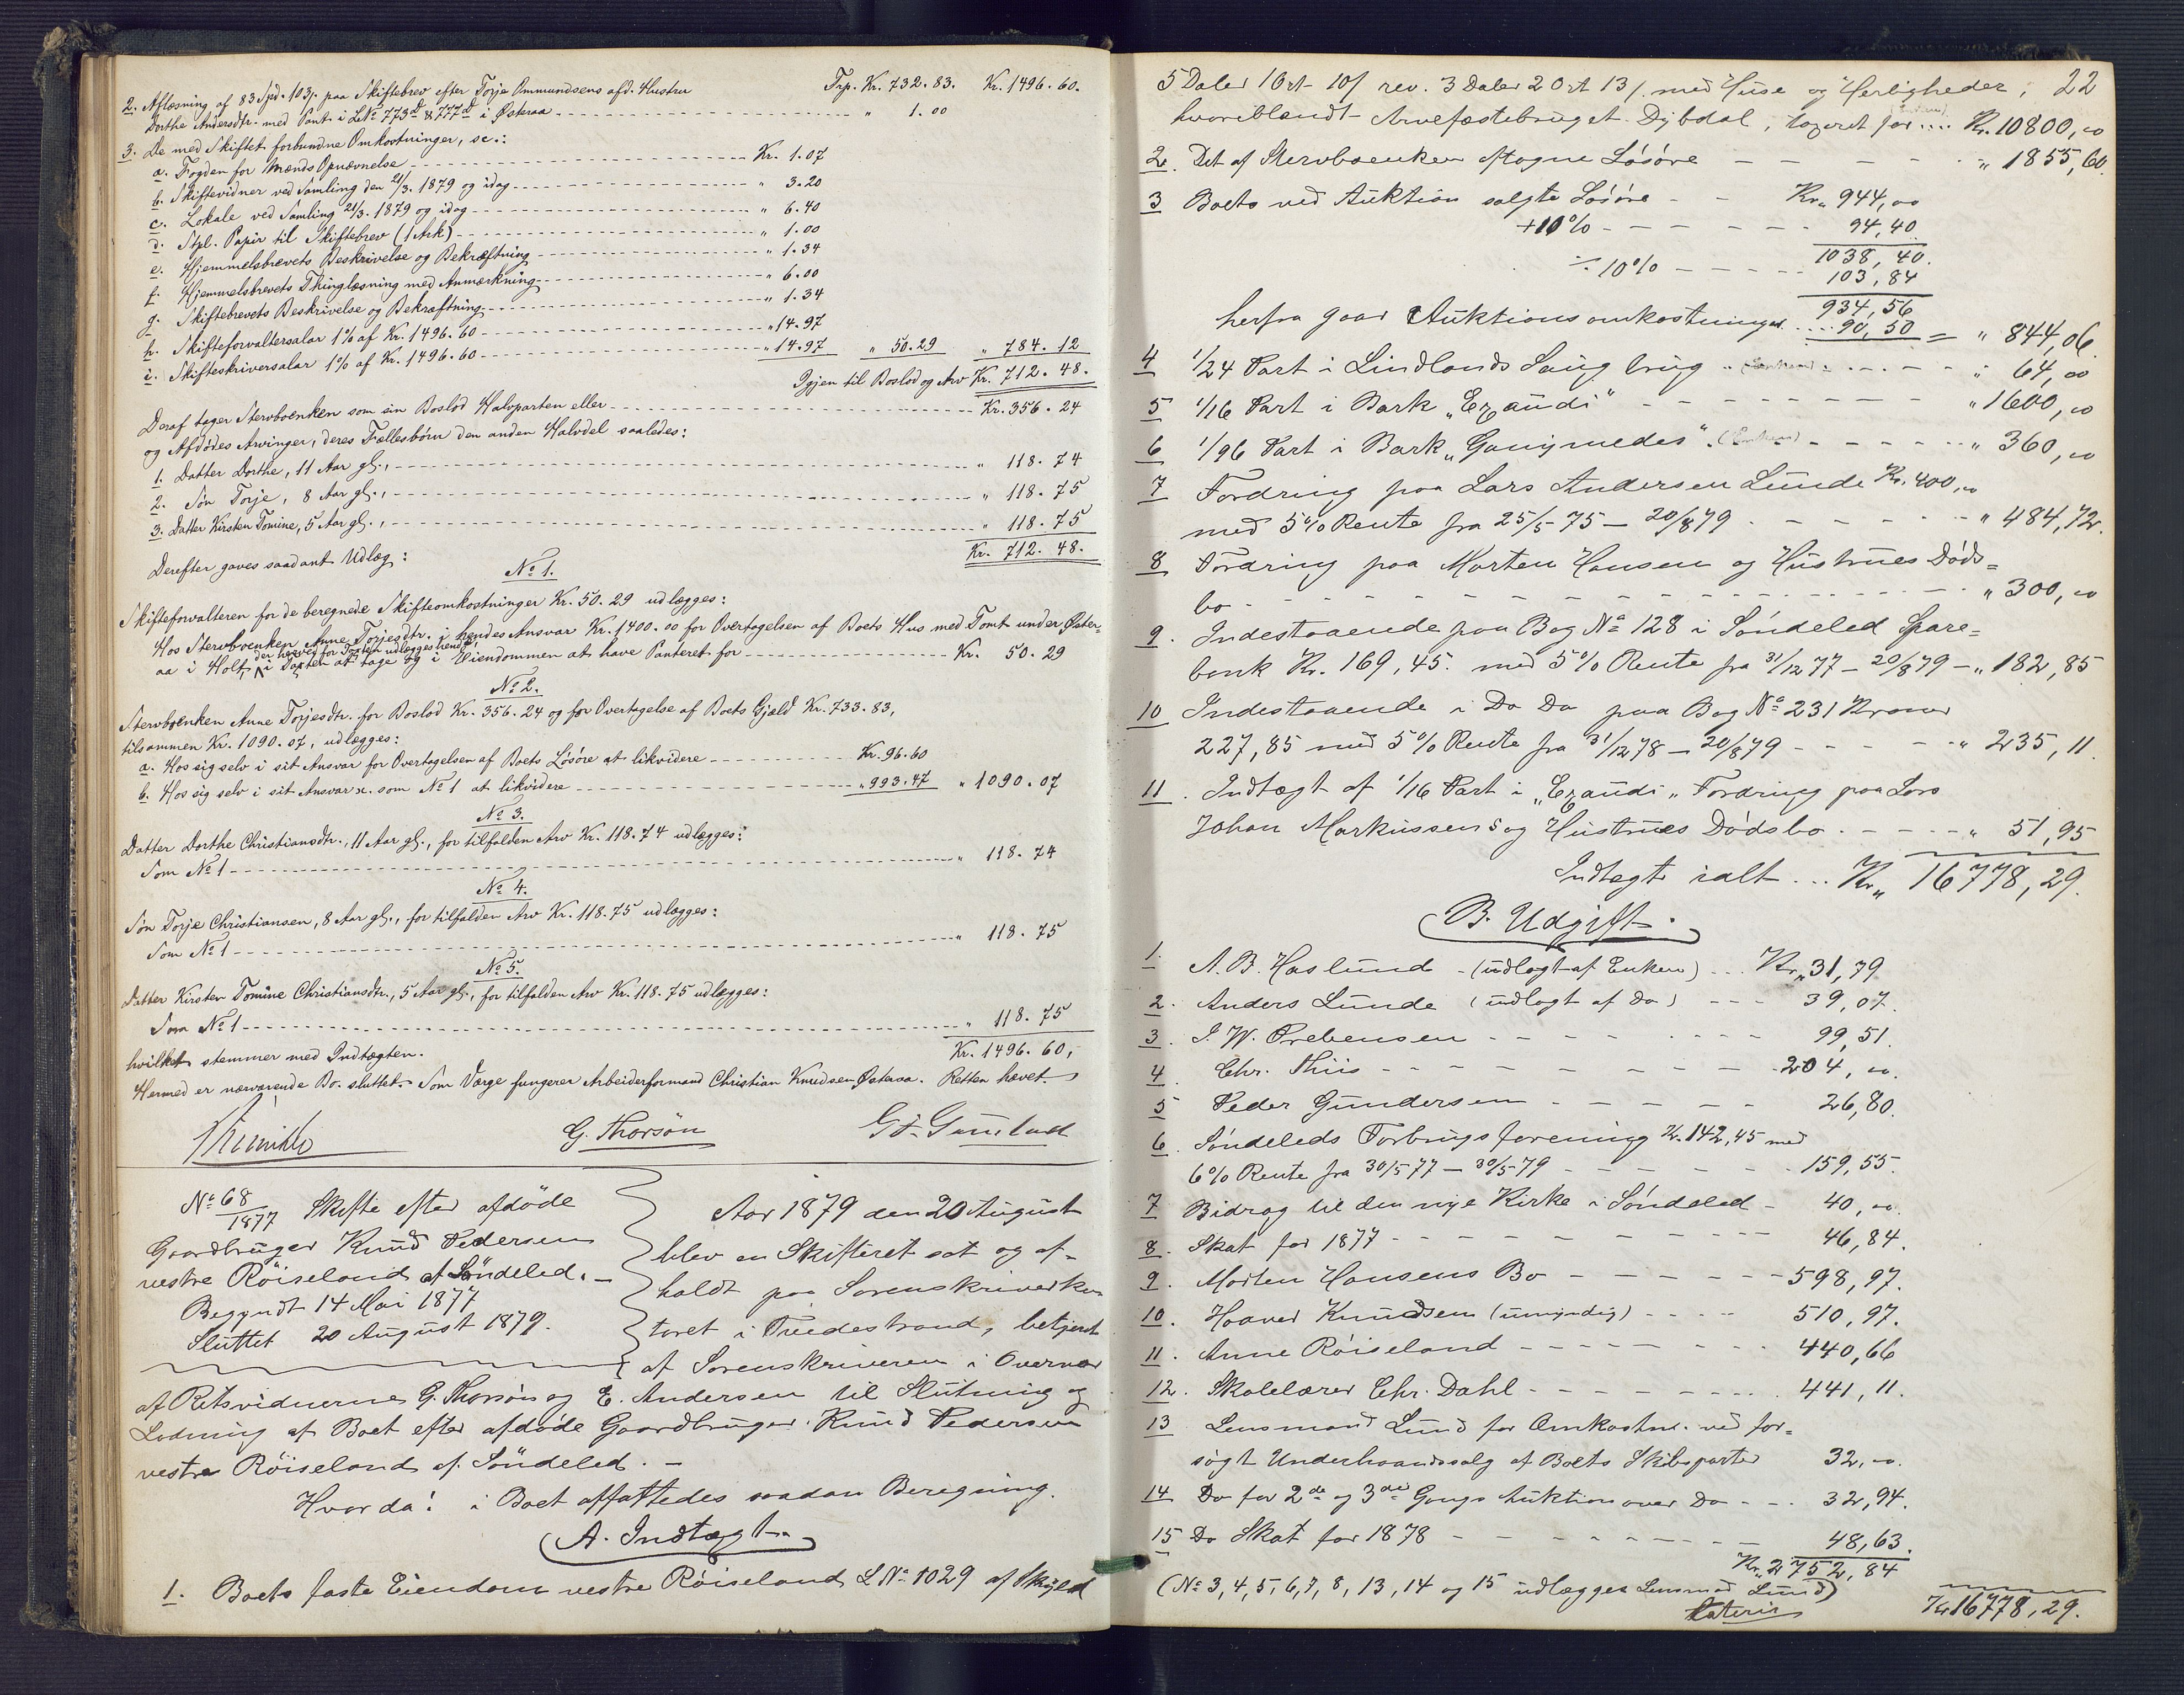 Trp. Kr. 732.83. Kr. 1496.60.
2. Aflæsning af 83 Spd. 103 s. paa Skiftebrev efter Torje Ommundsens afd. Hustru
Dorthe Andersdtr. med Pant i LNo 773d & 777d i Østeraa " 1.00
3. De med Skiftet forbundne Omkostninger, sc.:
a. Fogden for Mænds Opnævnelse Kr. 1.07
b. Skiftevidner ved Samling den 21/3. 1879 og idag " 3.20
c. Lokale ved Samling 21/3. 1879 og idag " 6.40
d. Stpl. Papir til Skiftebrev (1 Ark) " 1.00
e. Hjemmelsbrevets Beskrivelse og Bekræftning " 1.34
f. Hjemmelsbrevets Thinglæsning med Anmærkning " 6.00
g. Skiftebrevets Beskrivelse og Bekræftning " 1.34
h. Skifteforvaltersalar 1% af Kr. 1496.60 " 14.97
i. Skifteskriversalar 1% af Kr. 1496.60 " 14.97 " 50.29 " 784.12
Igjen til Boslod og Arv Kr. 712.48.
Deraf tager Stervboenken som sin Boslod Halvparten eller Kr. 356.24
og Afdødes Arvinger, deres Fællesbørn den anden Halvdel saaledes:
1. Datter Dorthe, 11 Aar gl., " 118.74
2. Søn Torje, 8 Aar gl., " 118.75
3. Datter Kirsten Tomine, 5 Aar gl., " 118.75
Kr. 712.48.
Derefter gaves saadant Udlæg:
No 1.
Skifteforvalteren for de beregnede Skifteomkostninger Kr. 50.29 udlægges:
Hos Stervboenken Anne Torjesdtr. i hendes Ansvar Kr. 1400.00 for Overtagelsen af Boets Hus med Tomt under Øster-
der herved for Taxten udlægges hende,
aa i Holt, i Taxten at tage og i Eiendommen at have Panteret for Kr. 50.29
No 2.
Stervboenken Anne Torjesdtr. for Boslod Kr. 356.24 og for Overtagelse af Boets Gjæld Kr. 733.83,
tilsammen Kr. 1090.07, udlægges:
a. Hos sig selv i sit Ansvar for Overtagelsen af Boets Løsøre at likvidere Kr. 96.60
b. Hos sig selv i sit Ansvar sc. som No 1 at likvidere " 993.47 " 1090.07
No 3.
Datter Dorthe Christiansdtr., 11 Aar gl., for tilfalden Arv Kr. 118.74 udlægges:
Som No 1 " 118.74
No 4.
Søn Torje Christiansen, 8 Aar gl., for tilfalden Arv Kr. 118.75 udlægges:
Som No 1 " 118.75
No 5.
Datter Kirsten Tomine Christiansdtr., 5 Aar gl., for tilfalden Arv Kr. 118.75 udlægges:
Som No 1 " 118.75
Kr. 1496.60,
hvilket stemmer med Indtægten.
Hermed er nærværende Bo sluttet. Som Værge fungerer Arbeiderformand Christian Knudsen Østeraa. Retten hævet.
G. Thorsön
No 68/1877 Skifte efter afdøde
Gaardbruger Knud Pedersen
vestre Röiseland af Söndeled. —
Begyndt 14 Mai 1877
Sluttet 20 August 1879.
Aar 1879 den 20 August
blev en Skifteret sat og af-
holdt paa Sorenskriverkon
toret i Tvedestrand, betjent
af Sorenskriveren i Overvær
af Retsvidnerne G. Thorsön og E. Andersen til Slutning og
Lodning af Boet efter afdøde Gaardbruger Knud Pedersen
vestre Röiseland af Söndeled. —
Hvorda: i Boet affattedes saadan Beregning.
A. Indtægt.
1. Boets faste Eiendom vestre Röiseland LNo 1029 af Skyld
22
5 Daler 1 Ort 10 s rev. 3 Daler 2 Ort 13 s. med Huse og Herligheder,
hvoriblandt Arvefæstebruget Dybdal, taxeret for .... Kr. 10800,00
2. Det af Stervboenken aftagne Løsøre " 1855,60.
3 Boets ved Auktion solgte Løsøre Kr. 944,00
+10% 94,40
1038,40.
÷ 10% 103,84
934,56
herfra gaar Auktionsomkostninger .... 90,50 = " 844,06.
4 1/24 Part i Lindlands Saugbrug (Enken) " 64,00
5 1/16 Part i Bark "Exaudi" " 1600,00
6 1/96 Part i Bark "Ganymedes". (Enken) " 360,00
7 Fordring paa Lars Andersen Lunde Kr. 400,00
med 5% Rente fra 25/5 75 — 20/8 79 " 484,72.
8 Fordring paa Morten Hansen og Hustrues Døds=
bo " 300,00
9. Indestaaende paa Bog No 128 i Söndeled Spare=
bank Kr. 169,45. med 5% Rente fra 31/12 77 — 20/8 79 — " 182,85
10 Indestaaende i Do Do paa Bog No 231 Kroner
227,85 med 5% Rente fra 31/12 78 — 20/8 79 " 235,11
11. Indtægt af 1/16 Part i "Exaudi" Fordring paa Lars
Johan Markussens og Hustrues Dødsbo " 51,95
Indtægt ialt ... Kr. 16778,29.
B. Udgift.
1. A. B. Haslund (udlagt af Enken) ... Kr. 31,79
2. Anders Lunde (udlagt af Do) 39,07.
3. I. W. Prebensen 99,51.
4. Chr. Thiis 204,00.
5 Peder Gundersen 26,80.
6. Söndeleds Forbrugsforening Kr. 142,45 med
6% Rente fra 30/5 77 — 30/5 79 159,55.
7 Bidrag til den nye Kirke i Söndeled 40,00.
8. Skat for 1877 46,84.
9. Morten Hansens Bo 598,97.
10. Haaver Knudsen (umyndig) 510,97.
11. Anne Röiseland 440,66
12. Skolelærer Chr. Dahl 441,11.
13 Lensmand Lund for Omkostn. ved for=
søgt Underhaandssalg af Boets Skibsparter 32,00.
14 Do for 2de og 3die Gangs Auktion over Do 32,94.
15 Do Skat for 1878 48,63.
Kr. 2752,84
(No 3, 4, 5, 6, 7, 8, 13, 14 og 15 udlægges Lensmd Lund)
Lateris Kr. 16778,29.